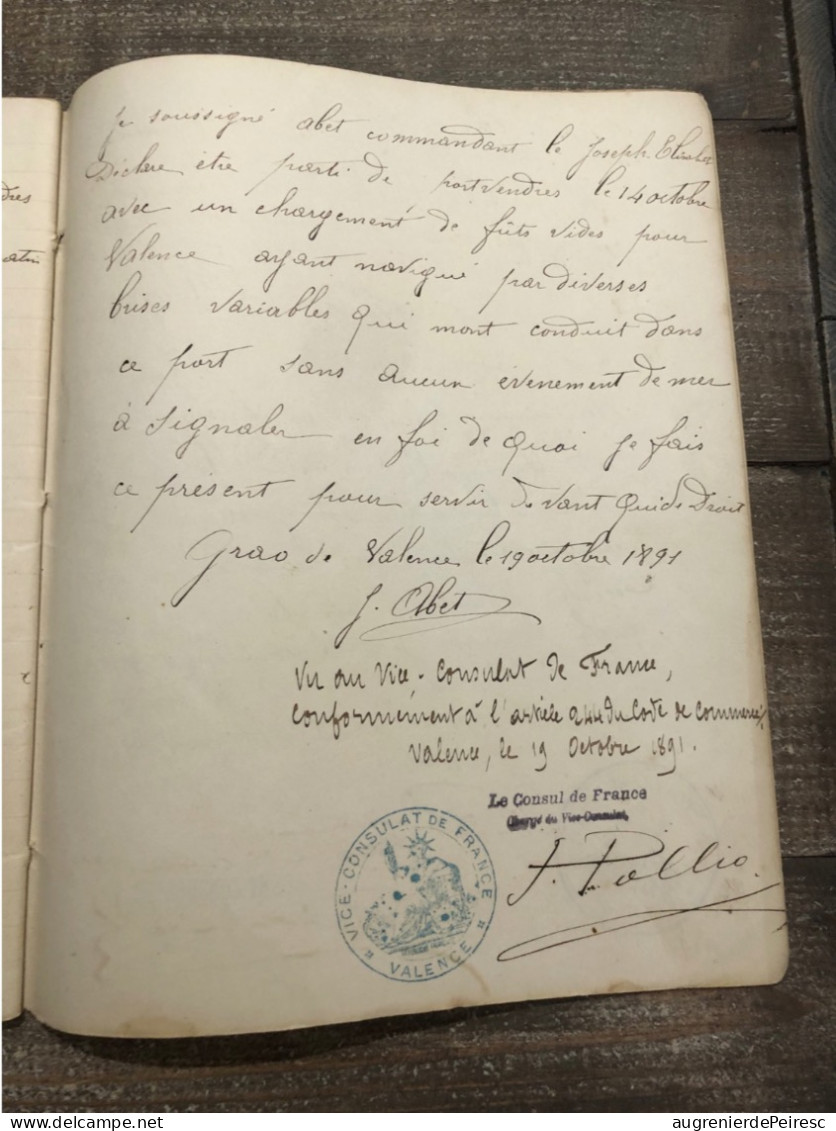 dres
atin
Je soussigné Abet commandant le Joseph
Déclare être parti de portvendres le 14 octobre
avec un chargement de fûts vides pour
Valence ayant navigué par diverses
brises variables qui mont conduit dans
ce port sans aucun évenement de mer
à signaler en foi de quoi je fais
ce présent pour servir devant qui de Droit
Grao de Valence le 19 octobre 1891
J. Abet
Vu au Vice-Consulat de France,
conformément à l'article 244 du Code de Commerce/.
Valence, le 19 Octobre 1891.
Le Consul de France
Chargé du Vice-Consulat,
J. Pollio.
VICE-CONSULAT DE FRANCE
VALENCE
delcampe.net
augrenierdePeiresc